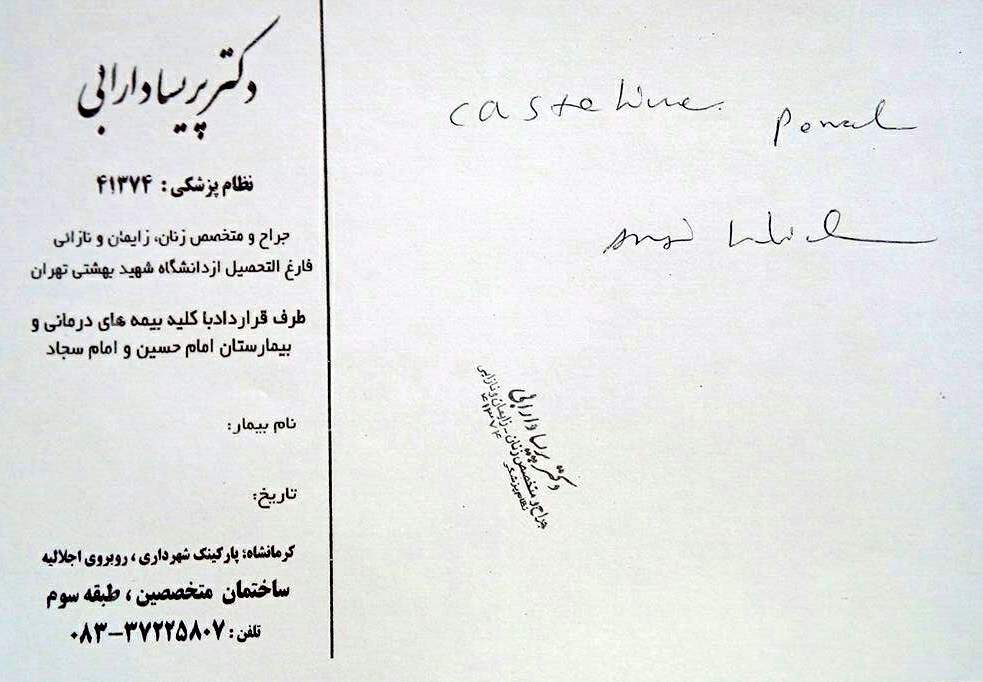 دکتر پریسا دارابی
نظام پزشکی: ۴۱۳۷۴
جراح و متخصص زنان، زایمان و نازائی
فارغ التحصیل ازدانشگاه شهید بهشتی تهران
طرف قراردادبا کلیه بیمه های درمانی و
بیمارستان امام حسین و امام سجاد
نام بیمار:
تاریخ:
کرمانشاه: پارکینک شهرداری ، روبروی اجلالیه
ساختمان متخصصین ، طبقه سوم
تلفن: ۰۸۳-۳۷۲۲۵۸۰۷
دکتر پریسا دارابی
جراح و متخصص زنان - زایمان و نازایی
نظام پزشکی ۴۱۳۷۴